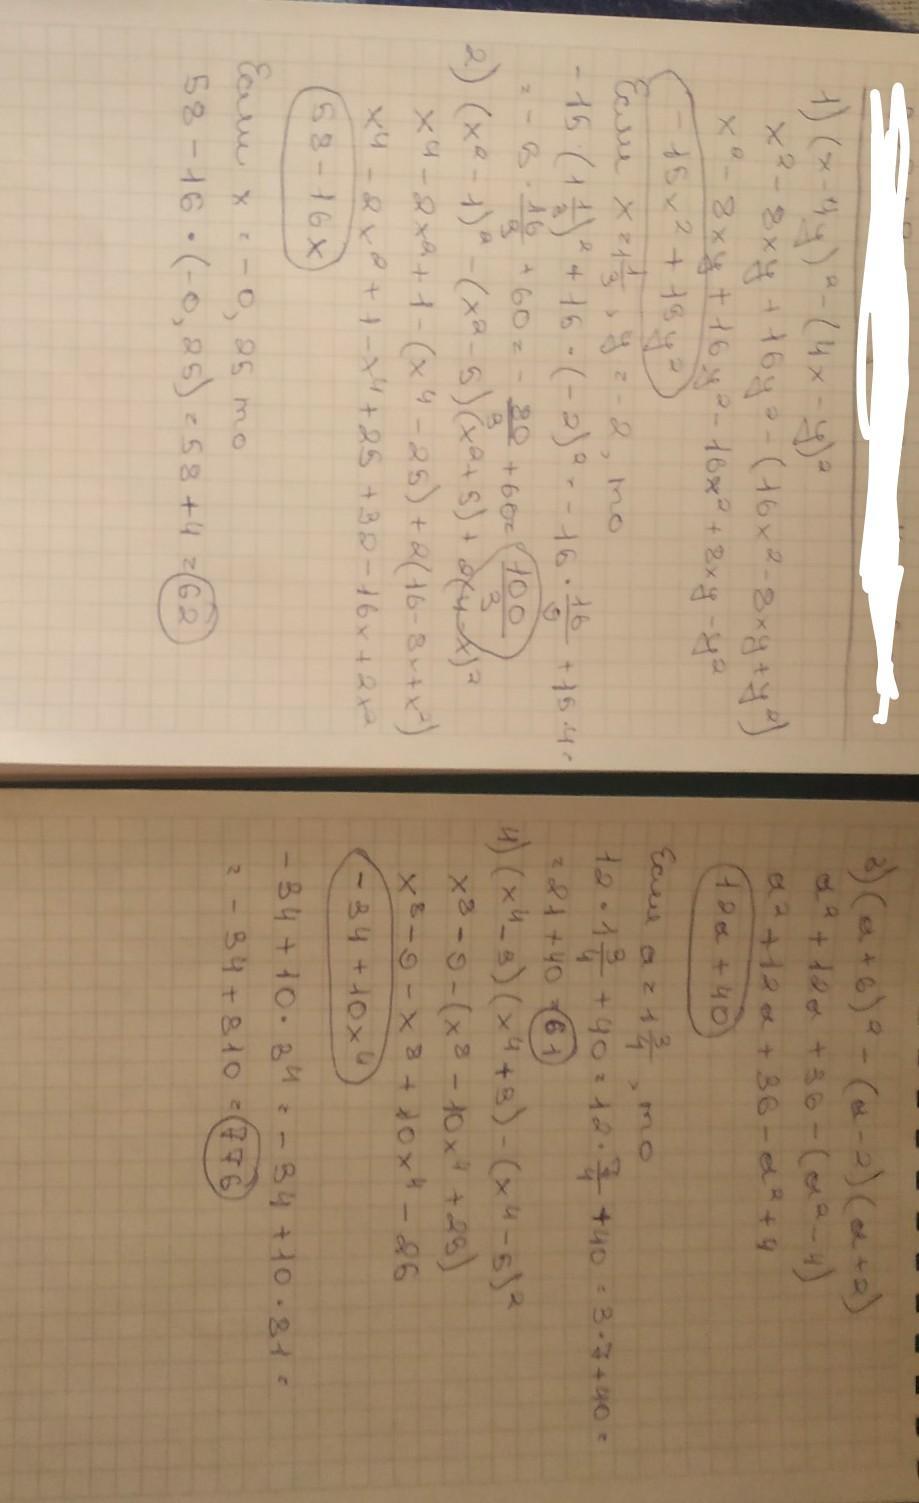 1) (x-4y)² - (4x-y)²
x² - 8xy + 16y² - (16x² - 8xy + y²)
x² - 8xy + 16y² - 16x² + 8xy - y²
-15x² + 15y²
Если x = 1 1/3, y = -2, то
-15 · (1 1/3)² + 15 · (-2)² = -15 · 16/9 + 15·4 =
= -5 · 16/3 + 60 = -80/3 + 60 = 100/3
2) (x²-1)² - (x²-5)(x²+5) + 2(4-x)²
x⁴ - 2x² + 1 - (x⁴ - 25) + 2(16 - 8x + x²)
x⁴ - 2x² + 1 - x⁴ + 25 + 32 - 16x + 2x²
58 - 16x
Если x = -0,25 то
58 - 16 · (-0,25) = 58 + 4 = 62
3) (a+6)² - (a-2)(a+2)
a² + 12a + 36 - (a² - 4)
a² + 12a + 36 - a² + 4
12a + 40
Если a = 1 3/4, то
12 · 1 3/4 + 40 = 12 · 7/4 + 40 = 3·7 + 40 =
= 21 + 40 = 61
4) (x⁴-3)(x⁴+3) - (x⁴-5)²
x⁸ - 9 - (x⁸ - 10x⁴ + 25)
x⁸ - 9 - x⁸ + 10x⁴ - 25
-34 + 10x⁴
-34 + 10·3⁴ = -34 + 10·81 =
= -34 + 810 = 776